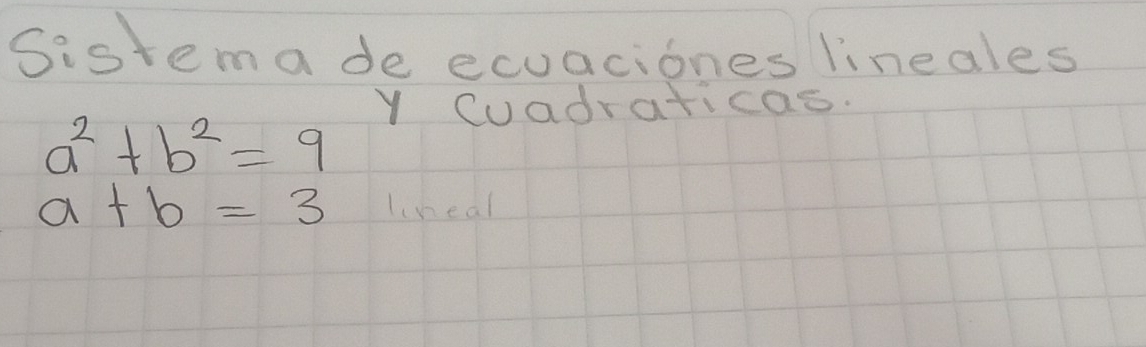 Sistema de ecuaciónes lineales
y cuadraticas.
a² + b² = 9
a + b = 3 lineal